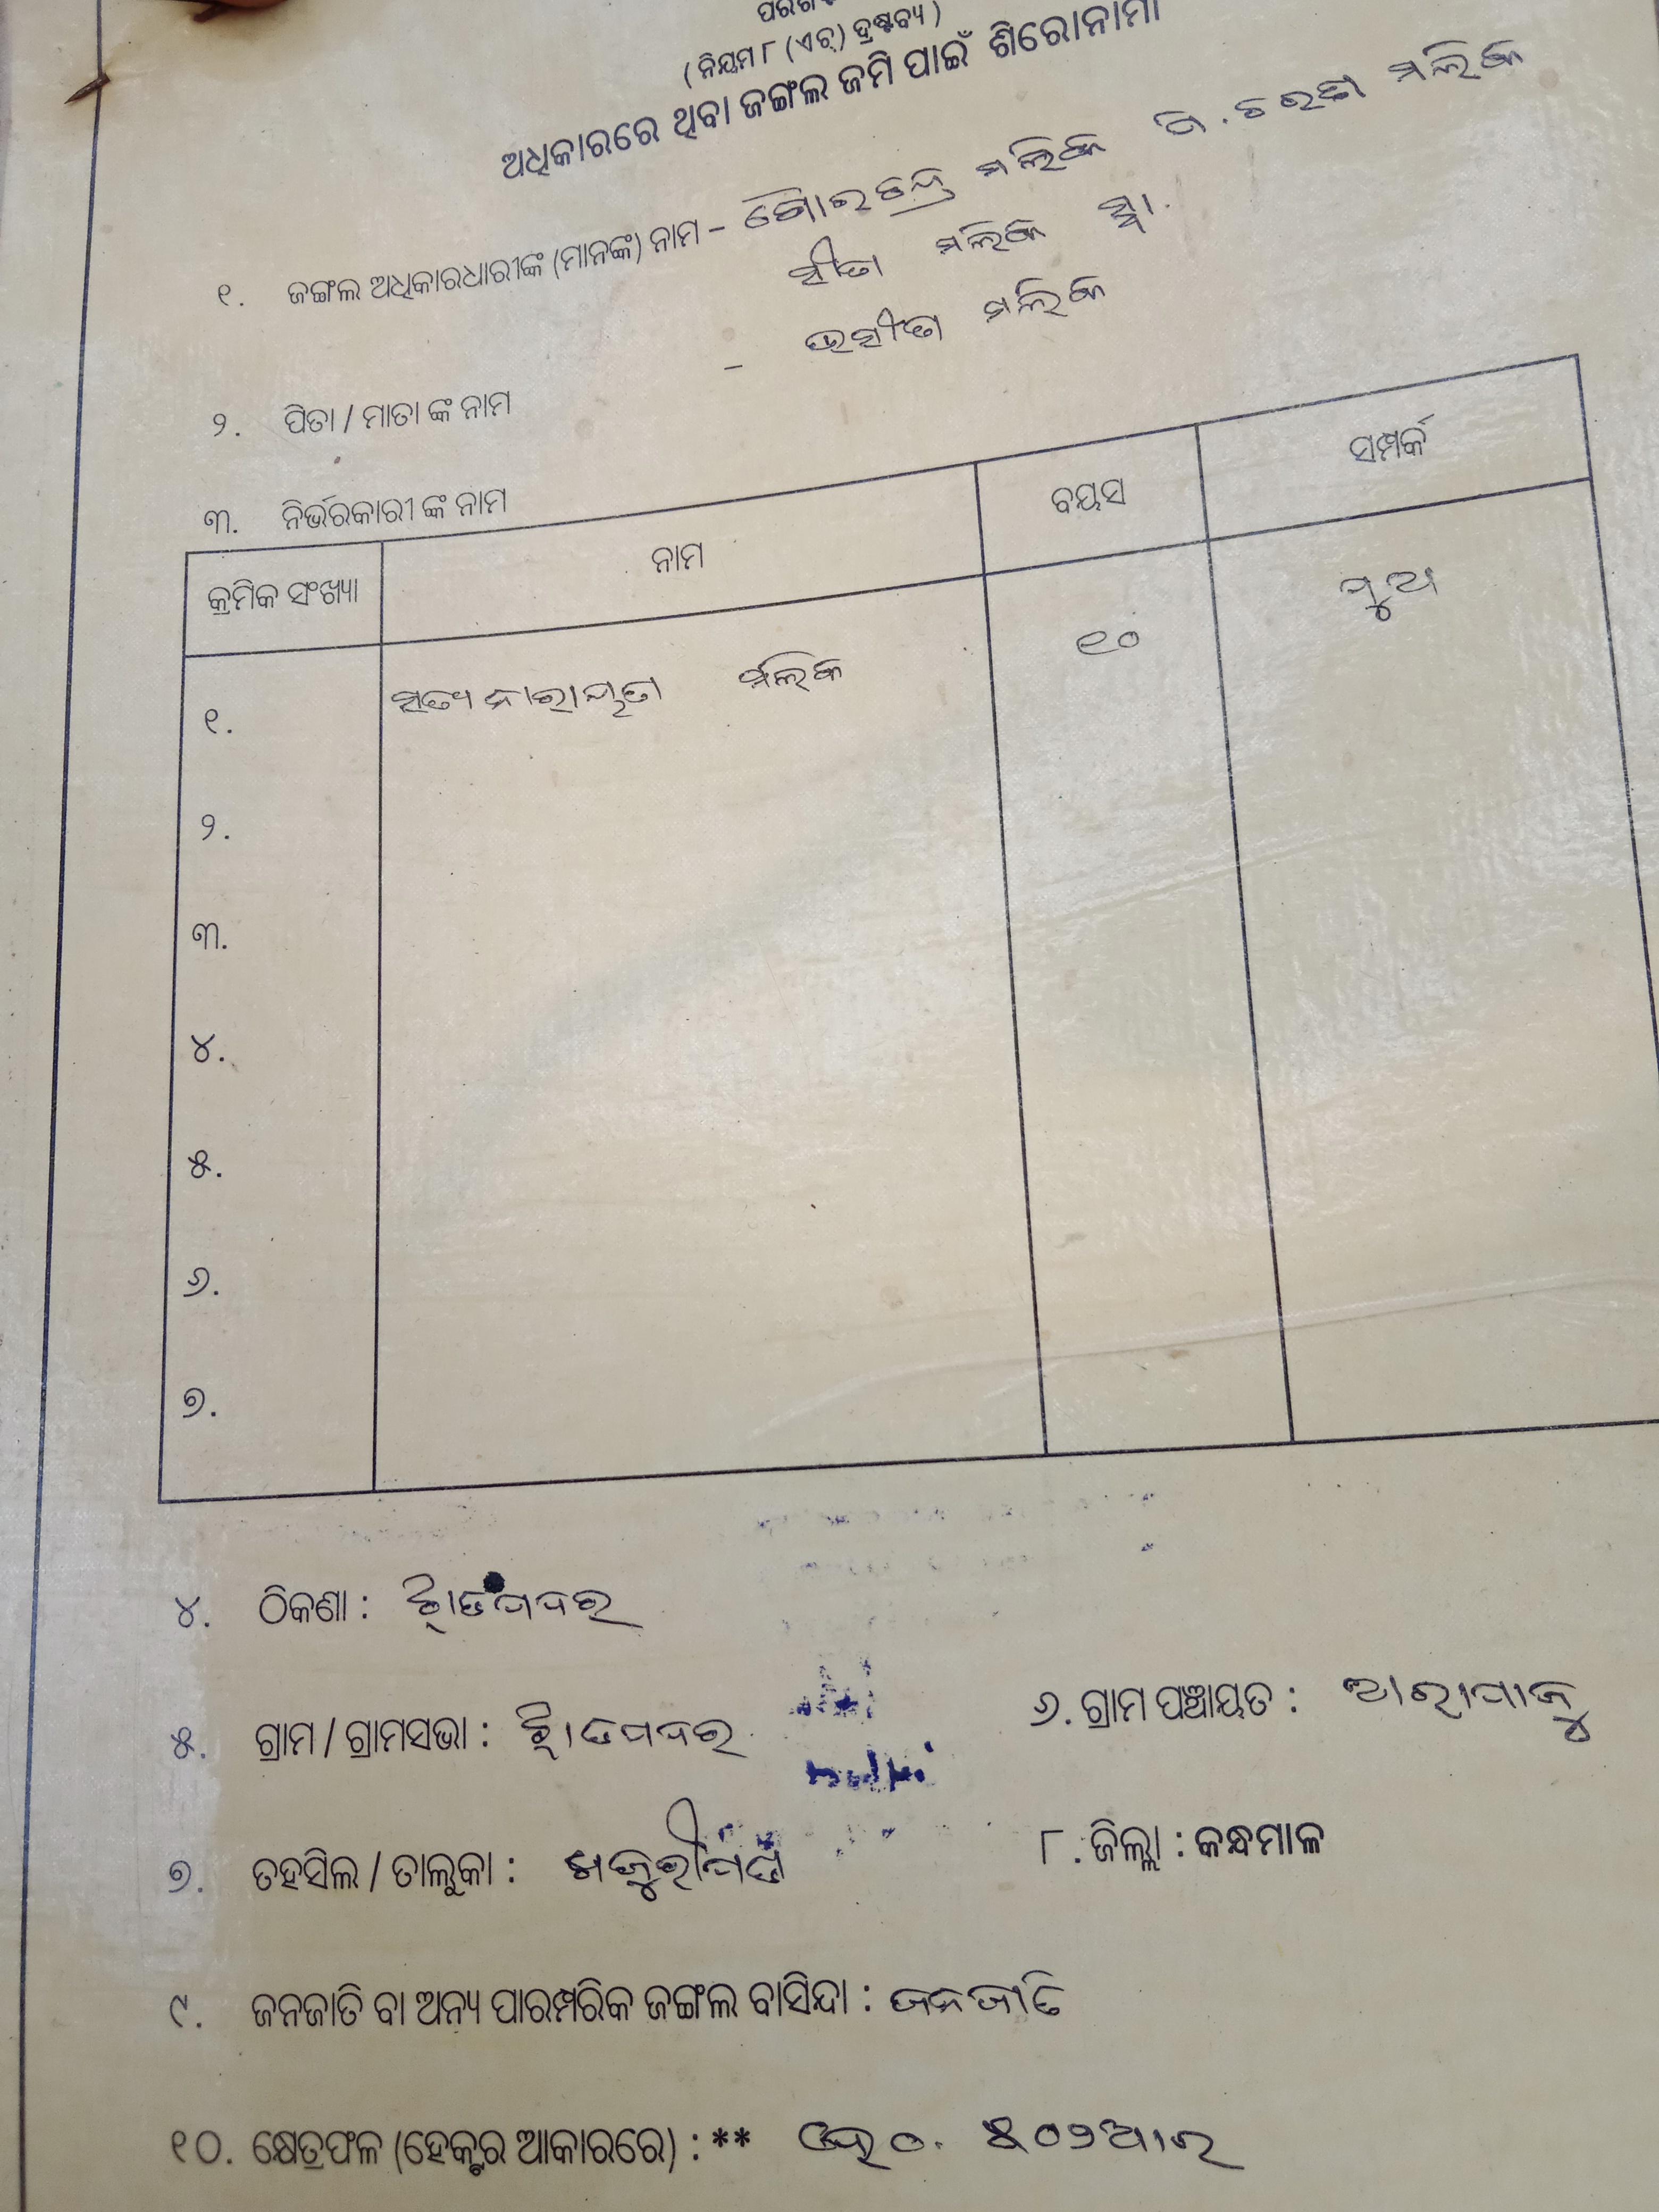 ( ନିୟମ ୮ (ଏଚ୍) ଦ୍ରଷ୍ଟବ୍ୟ )
ଅଧିକାରରେ ଥିବା ଜଙ୍ଗଲ ଜମି ପାଇଁ ଶିରୋନାମା
୧. ଜଙ୍ଗଲ ଅଧିକାରଧାରୀଙ୍କ (ମାନଙ୍କ) ନାମ – ଗୋରଚନ୍ଦ୍ର ମଲିକ ମଲିକ
ସୀତା ମଲିକ ସ୍ୱା.
୨. ପିତା / ମାତା ଙ୍କ ନାମ – ମଲିକ
୩. ନିର୍ଭରକାରୀ ଙ୍କ ନାମ
କ୍ରମିକ ସଂଖ୍ୟା ନାମ ବୟସ ସମ୍ପର୍କ
୧. ସତ୍ୟ ନାରାୟଣ ମଲିକ ୧୦ ପୁଅ
୨.
୩.
୪.
୫.
୬.
୭.
୪. ଠିକଣା :
୫. ଗ୍ରାମ / ଗ୍ରାମସଭା : ୬. ଗ୍ରାମ ପଞ୍ଚାୟତ :
୭. ତହସିଲ / ତାଲୁକା : ଖଜୁରୀପଡ଼ା ୮. ଜିଲ୍ଲା : କନ୍ଧମାଳ
୯. ଜନଜାତି ବା ଅନ୍ୟ ପାରମ୍ପରିକ ଜଙ୍ଗଲ ବାସିନ୍ଦା : ଜନଜାତି
୧୦. କ୍ଷେତ୍ରଫଳ (ହେକ୍ଟର ଆକାରରେ) : ** ହେ ୦. ୫୦୨ଆର